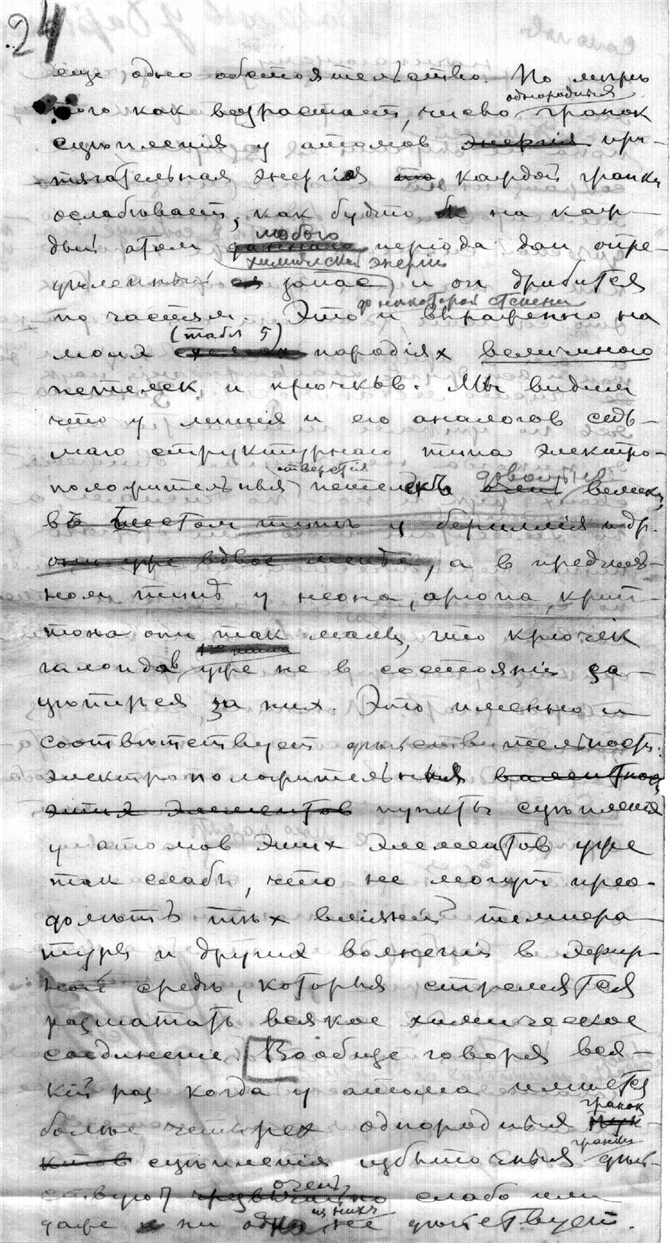 24
еще одно обстоятельство. По мѣрѣ
того как возрастает, число однородныхъ гранок
сцѣпленiя у атомов энергiя при-
тягательная энергiя каждой гранки
ослабѣвает, как будто на каж-
дый атом любого перiода дан опре-
дѣленный химической энергiи запас и он дробится
по частям. Это и выраженно до нѣкоторой степени на
моих (табл 5) пародiях величиною
петелек и крючкѣв. Мы видим
что у литiя и его аналогов седь-
маго структурнаго типа электро-
положительныя отверстiя петелекъ довольно велики
въ шестом типѣ у бериллiя и др.
они уже вдвое меньше, а в предид-
ном типѣ у неона, аргона, крип-
тона они так малы, что крючек
галоидов уже не в состоянiи за-
цѣпиться за них. Это именно и
соотвѣтствует дѣйствительност.
электроположительныя валентнос
этих элементов пункты сцѣпленiя
у атомов этих элементов уже
так слабы, что не могут прео-
долѣть тѣх влiянiй темпера-
туры и других волненiй в эфир-
ной средѣ, которыя стремятся
разшатать всякое химическое
соединенiе. [Вообще говоря вся-
кiй раз когда у атома имѣется
более четырех однородных гранок пунк-
ктов сцѣпленiя избыточныя гранки дѣй-
ствуют чрезвычайно очень слабо или
даже и ни одна из нихъ не дѣйствует.